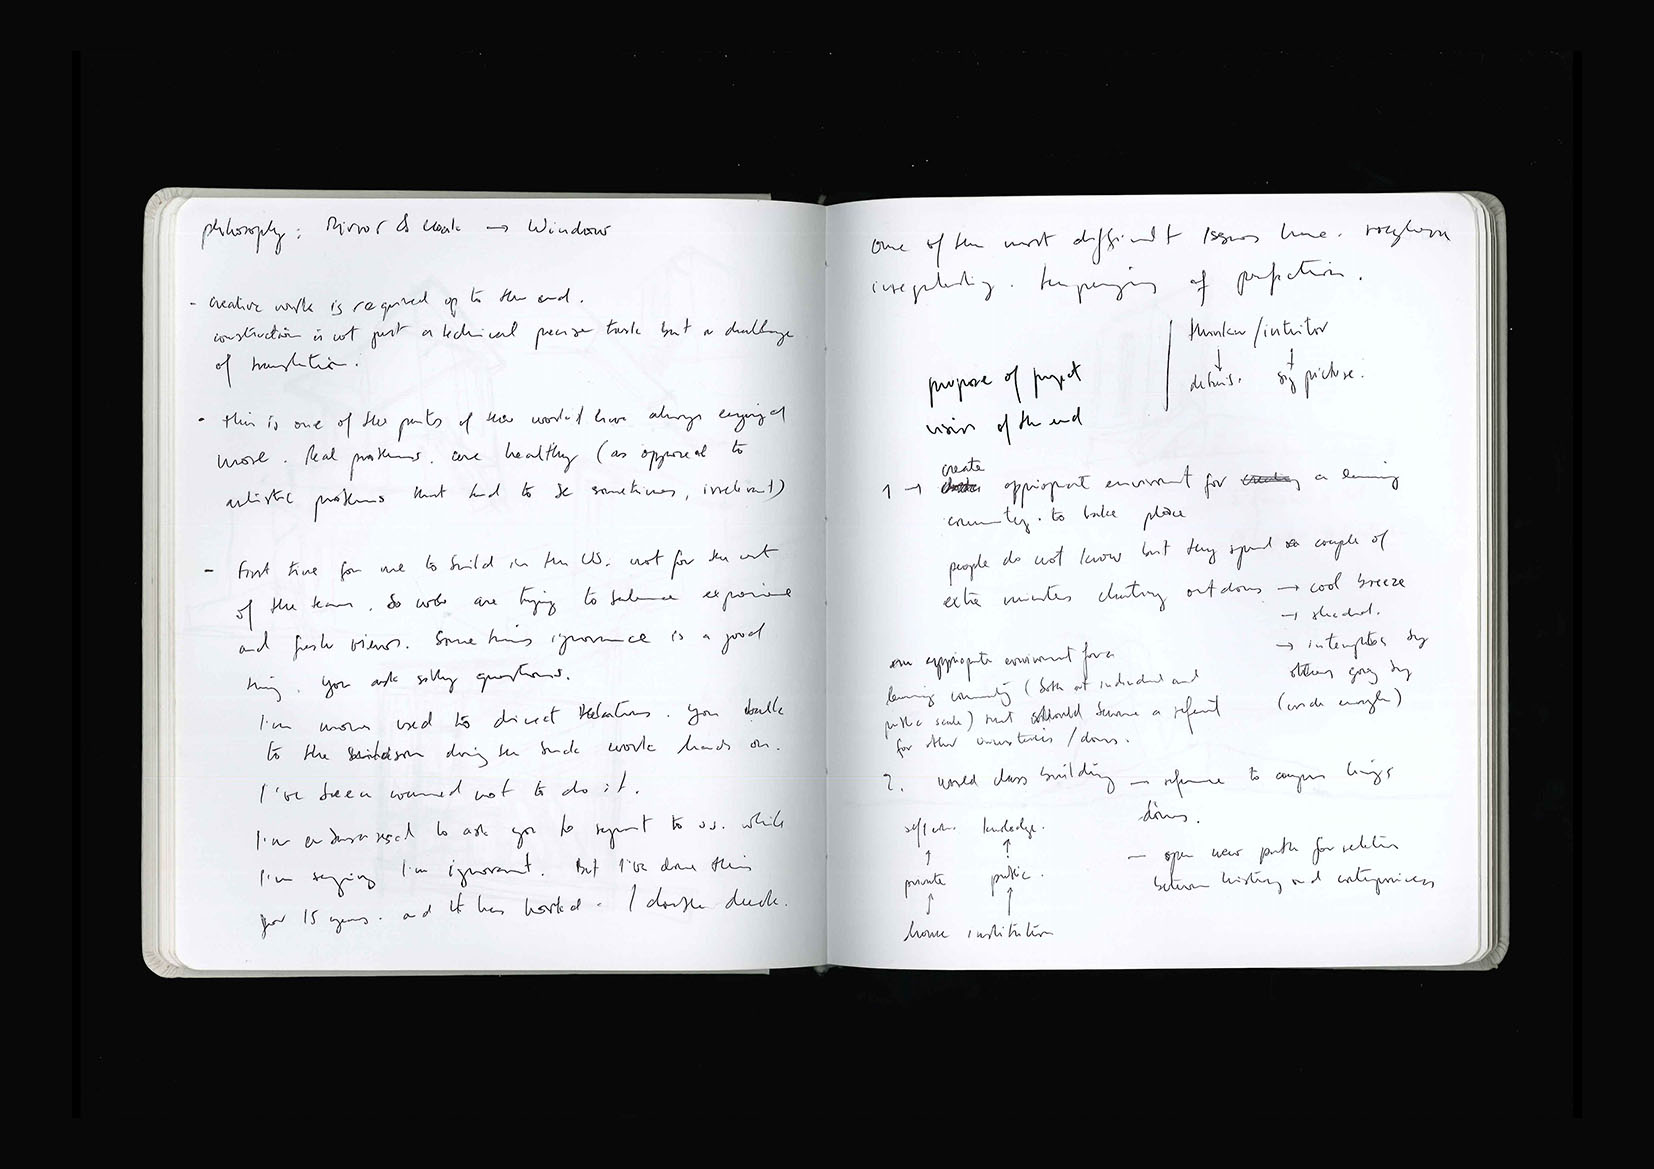 philosophy: Mirror & → Window
- creative work is required up to the end.
construction is not just a technical precise task but a challenge
of translation.
- this is one of the parts of the work I have always enjoyed
most. Real problems. are healthy (as opposed to
artistic problems that tend to be sometimes, irrelevant)
- First time for me to build in the US. not for the rest
of the team. So we are trying to balance experience
and fresh views. Sometimes ignorance is a good
thing. you ask silly questions.
I'm more used to direct relations. you talk
to the during the work hands on.
I've been warned not to do it.
I'm embarrassed to ask you to to us. while
I'm saying I'm ignorant. But I've done this
for 15 years. and it has worked. I double check.
one of the most difficult issues here. roughness
irregularity. of perfection.
thinker / intuitor
↓ ↓
details. big picture.
purpose of project
vision of the end
create
1 → appropriate environment for a learning
community. to take place
people do not know but they spend a couple of
extra minutes chatting outdoors → cool breeze
→ shaded.
→ interrupted by
others going by
(wide enough)
an appropriate environment for a
learning community (both at individual and
public scale) that should become a referent
for other universities / dorms.
2. world class building – reference to campus livings
dorms.
self knowledge.
↑ ↑
private public.
↑ ↑
home institution
– open new path for relation
between history and